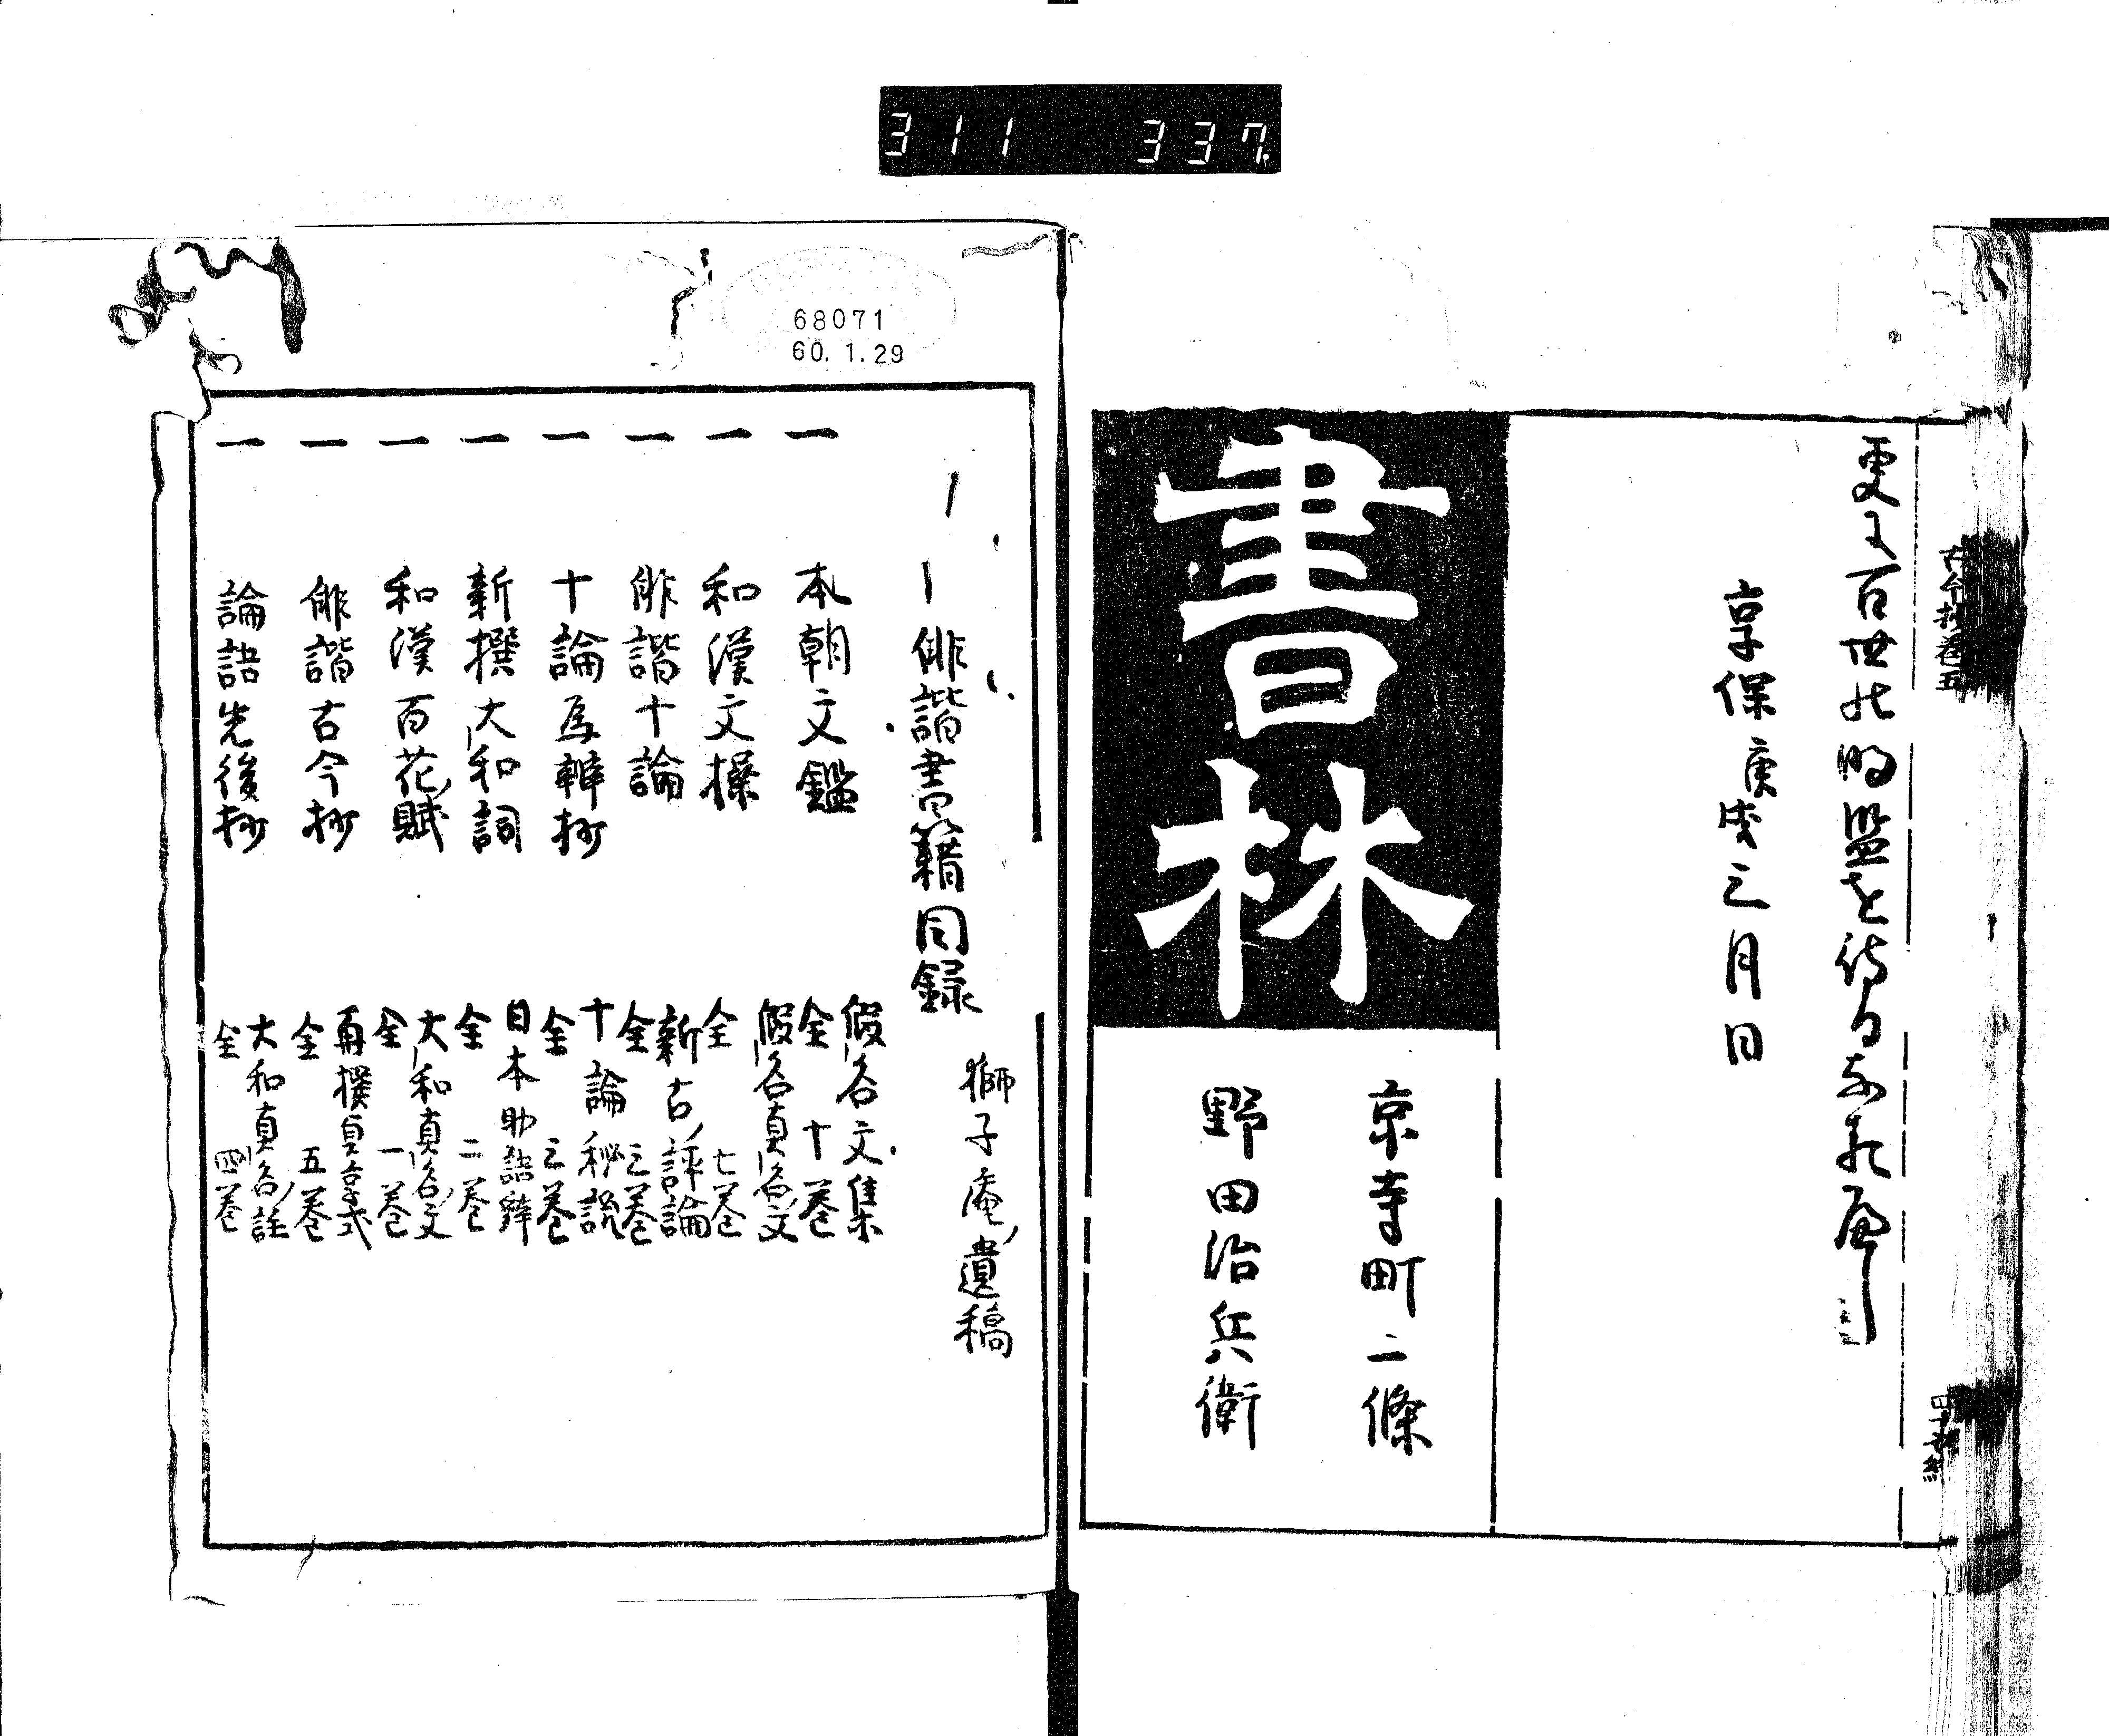 311 337
更に百世の明鑑を待もの
享保庚戌三月日
書林
京寺町二條
野田治兵衛
古今抄卷五
68071
60.1.29
俳諧書籍目録
獅子庵遺稿
一 本朝文鑑
假名文集
全十卷
一 和漢文操
假名真名文
全七卷
一 俳諧十論
新古評論
全三卷
一 十論為辨抄
十論秘説
全三卷
一 新撰大和詞
日本助語辞
全二卷
一 和漢百花賦
大和真名文
全一卷
一 俳諧古今抄
再撰貞享式
全五卷
一 論語先後抄
大和真名註
全四卷